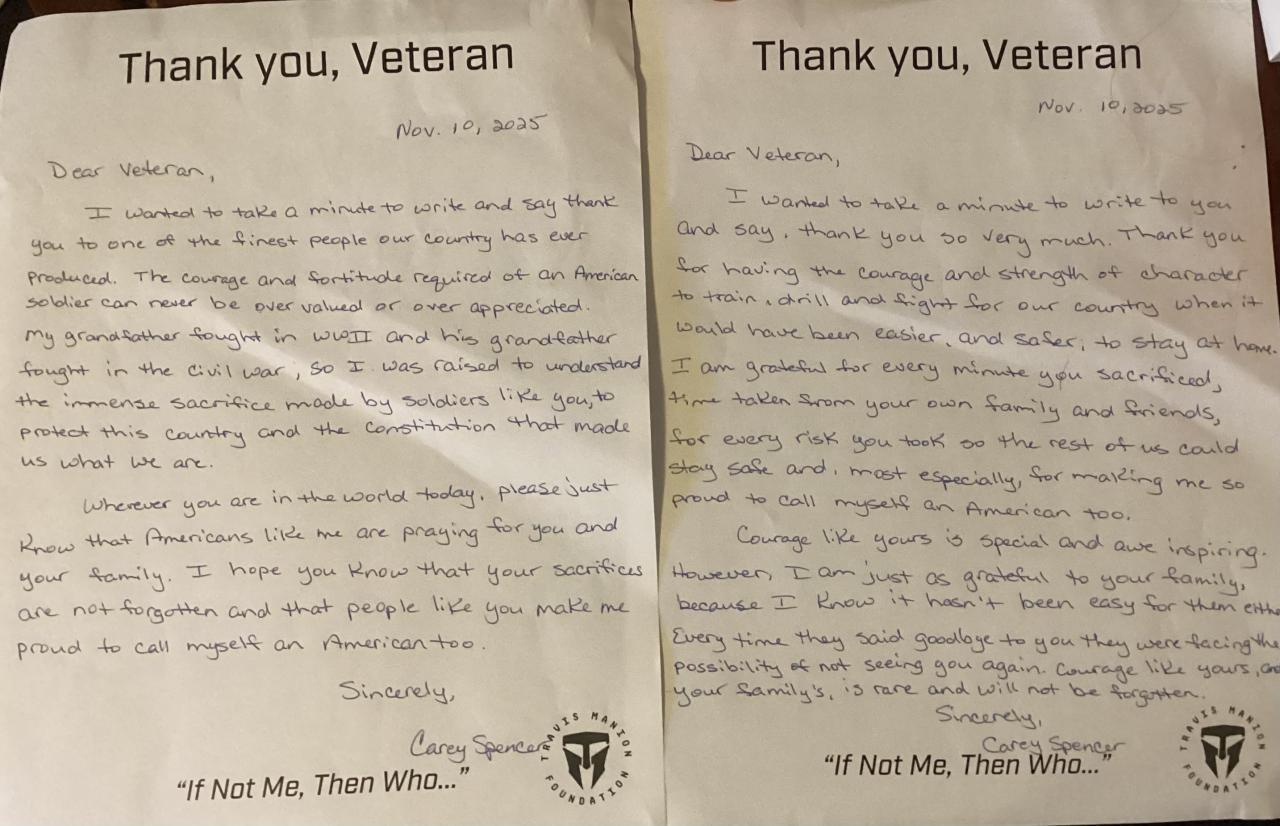 Thank you, Veteran
Nov. 10, 2025
Dear Veteran,
I wanted to take a minute to write and say thank
you to one of the finest people our country has ever
produced. The courage and fortitude required of an American
soldier can never be over valued or over appreciated.
My grandfather fought in WWII and his grandfather
fought in the civil war, so I was raised to understand
the immense sacrifice made by soldiers like you, to
protect this country and the constitution that made
us what we are.
Wherever you are in the world today, please just
know that Americans like me are praying for you and
your family. I hope you know that your sacrifices
are not forgotten and that people like you make me
proud to call myself an American too.
Sincerely,
Carey Spencer
"If Not Me, Then Who..."
TRAVIS MANION FOUNDATION
Thank you, Veteran
Nov. 10, 2025
Dear Veteran,
I wanted to take a minute to write to you
and say, thank you so very much. Thank you
for having the courage and strength of character
to train, drill and fight for our country when it
would have been easier, and safer, to stay at home.
I am grateful for every minute you sacrificed,
time taken from your own family and friends,
for every risk you took so the rest of us could
stay safe and, most especially, for making me so
proud to call myself an American too.
Courage like yours is special and awe inspiring.
However, I am just as grateful to your family,
because I know it hasn't been easy for them eithe
Every time they said goodbye to you they were facing the
possibility of not seeing you again. Courage like yours, and
your family's, is rare and will not be forgotten.
Sincerely,
Carey Spencer
"If Not Me, Then Who..."
TRAVIS MANION FOUNDATION